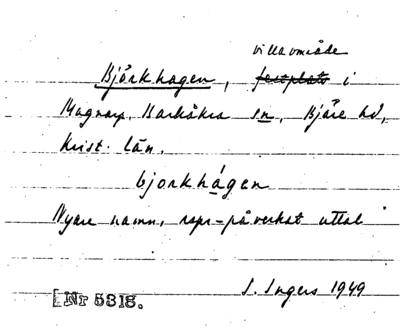 villaområde
Björkhagen, feriplats i
Magnarp, Barkåkra sn, Bjäre hd,
Krist. län.
bjorkhágen
Nyare namn, rspr-påverkat uttal
I. Ingers 1949
[Nr 5318.